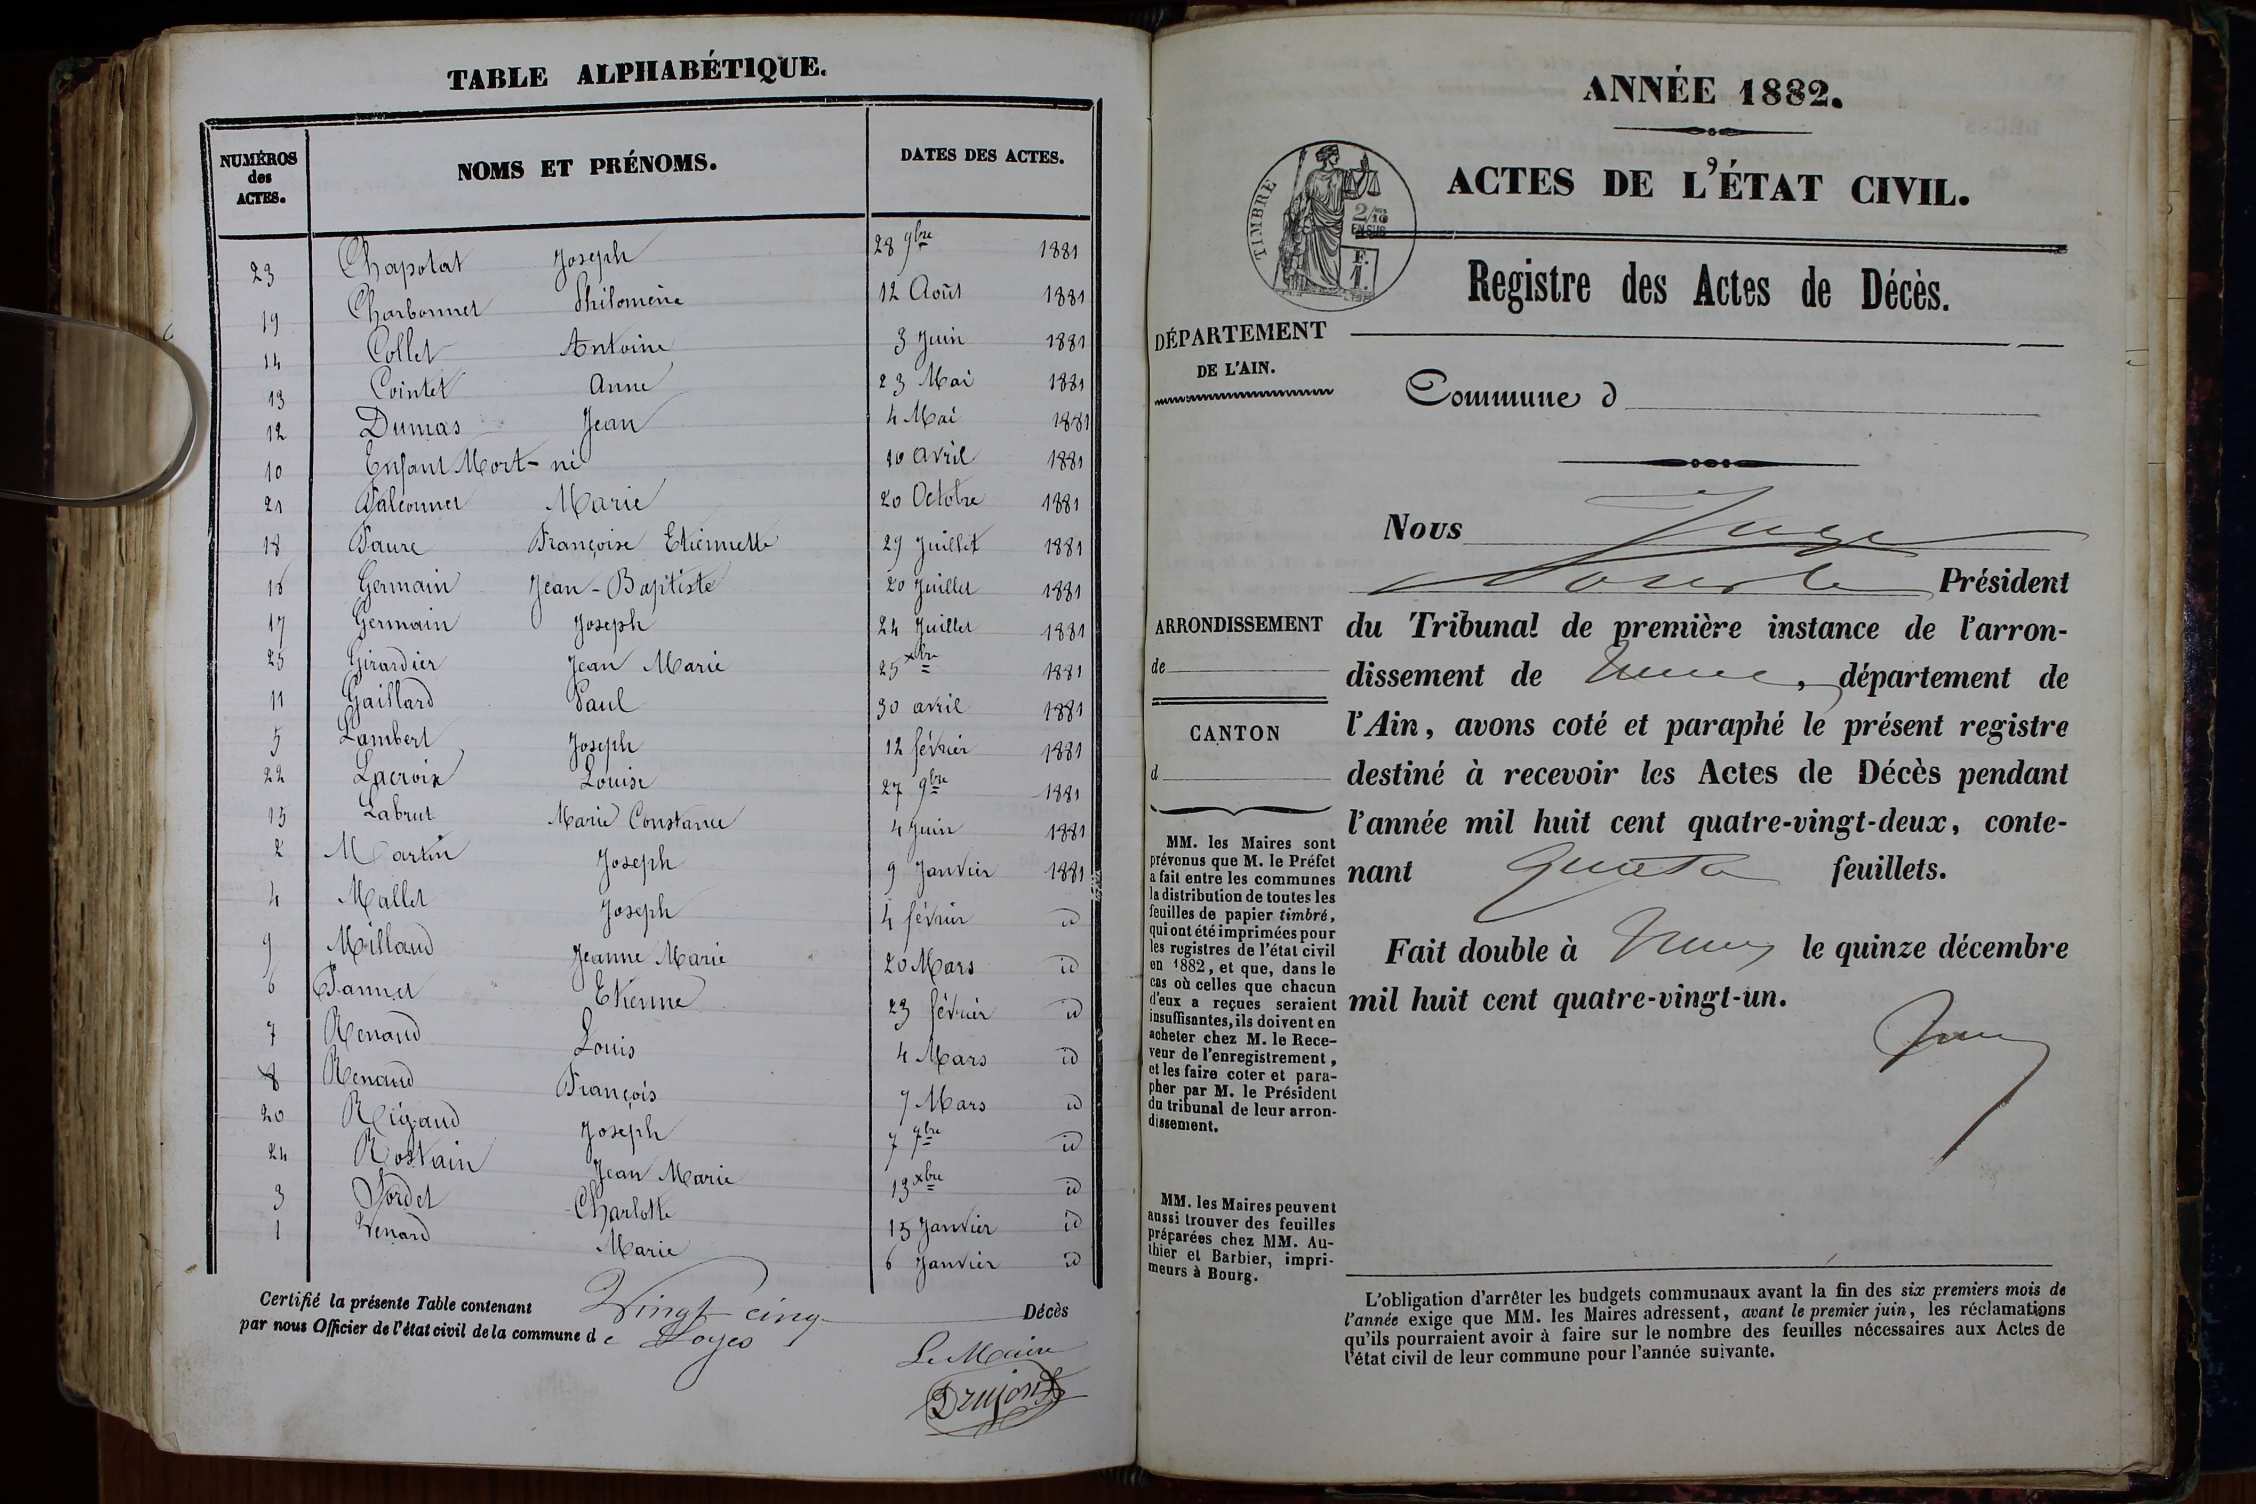 TABLE ALPHABÉTIQUE.
NUMÉROS des ACTES. NOMS ET PRÉNOMS. DATES DES ACTES.
23 Chapolat Joseph 28 9bre 1881
19 Charbonnet Philomène 12 Août 1881
14 Collet Antoine 3 Juin 1881
13 Cointet Anne 23 Mai 1881
12 Dumas Jean 4 Mai 1881
10 Enfant Mort-né 10 avril 1881
21 Falconnet Marie 20 Octobre 1881
18 Faure Françoise Etiennette 29 Juillet 1881
16 Germain Jean-Baptiste 20 Juillet 1881
17 Germain Joseph 24 Juillet 1881
25 Girardier Jean Marie 25 xbre 1881
11 Gaillard Paul 30 avril 1881
5 Lambert Joseph 12 février 1881
22 Lacroix Louise 27 9bre 1881
15 Labrut Marie Constance 4 Juin 1881
2 Martin Joseph 9 Janvier 1881
4 Mallet Joseph 4 février id
9 Millaud Jeanne Marie 20 Mars id
6 Pannet Etienne 23 février id
7 Renaud Louis 4 Mars id
8 Renaud François 7 Mars id
20 Rigaud Joseph 7 7bre id
24 Rostain Jean Marie 13 xbre id
3 Sordet Charlotte 15 Janvier id
1 Venard Marie 6 Janvier id
Certifié la présente Table contenant Vingt cinq Décès
par nous Officier de l'état civil de la commune de Loyes
Le Maire
Drujon
ANNÉE 1882.
ACTES DE L'ÉTAT CIVIL.
TIMBRE
2/10
EN SUS
F.
1.
Registre des Actes de Décès.
DÉPARTEMENT
DE L'AIN.
Commune d
Nous Juge
Président
ARRONDISSEMENT
de
CANTON
d
du Tribunal de première instance de l'arron-
dissement de , département de
l'Ain, avons coté et paraphé le présent registre
destiné à recevoir les Actes de Décès pendant
l'année mil huit cent quatre-vingt-deux, conte-
nant feuillets.
Fait double à le quinze décembre
mil huit cent quatre-vingt-un.
MM. les Maires sont
prévenus que M. le Préfet
a fait entre les communes
la distribution de toutes les
feuilles de papier timbré,
qui ont été imprimées pour
les registres de l'état civil
en 1882, et que, dans le
cas où celles que chacun
d'eux a reçues seraient
insuffisantes, ils doivent en
acheter chez M. le Rece-
veur de l'enregistrement,
et les faire coter et para-
pher par M. le Président
du tribunal de leur arron-
dissement.
MM. les Maires peuvent
aussi trouver des feuilles
préparées chez MM. Au-
thier et Barbier, impri-
meurs à Bourg.
L'obligation d'arrêter les budgets communaux avant la fin des six premiers mois de
l'année exige que MM. les Maires adressent, avant le premier juin, les réclamations
qu'ils pourraient avoir à faire sur le nombre des feuilles nécessaires aux Actes de
l'état civil de leur commune pour l'année suivante.